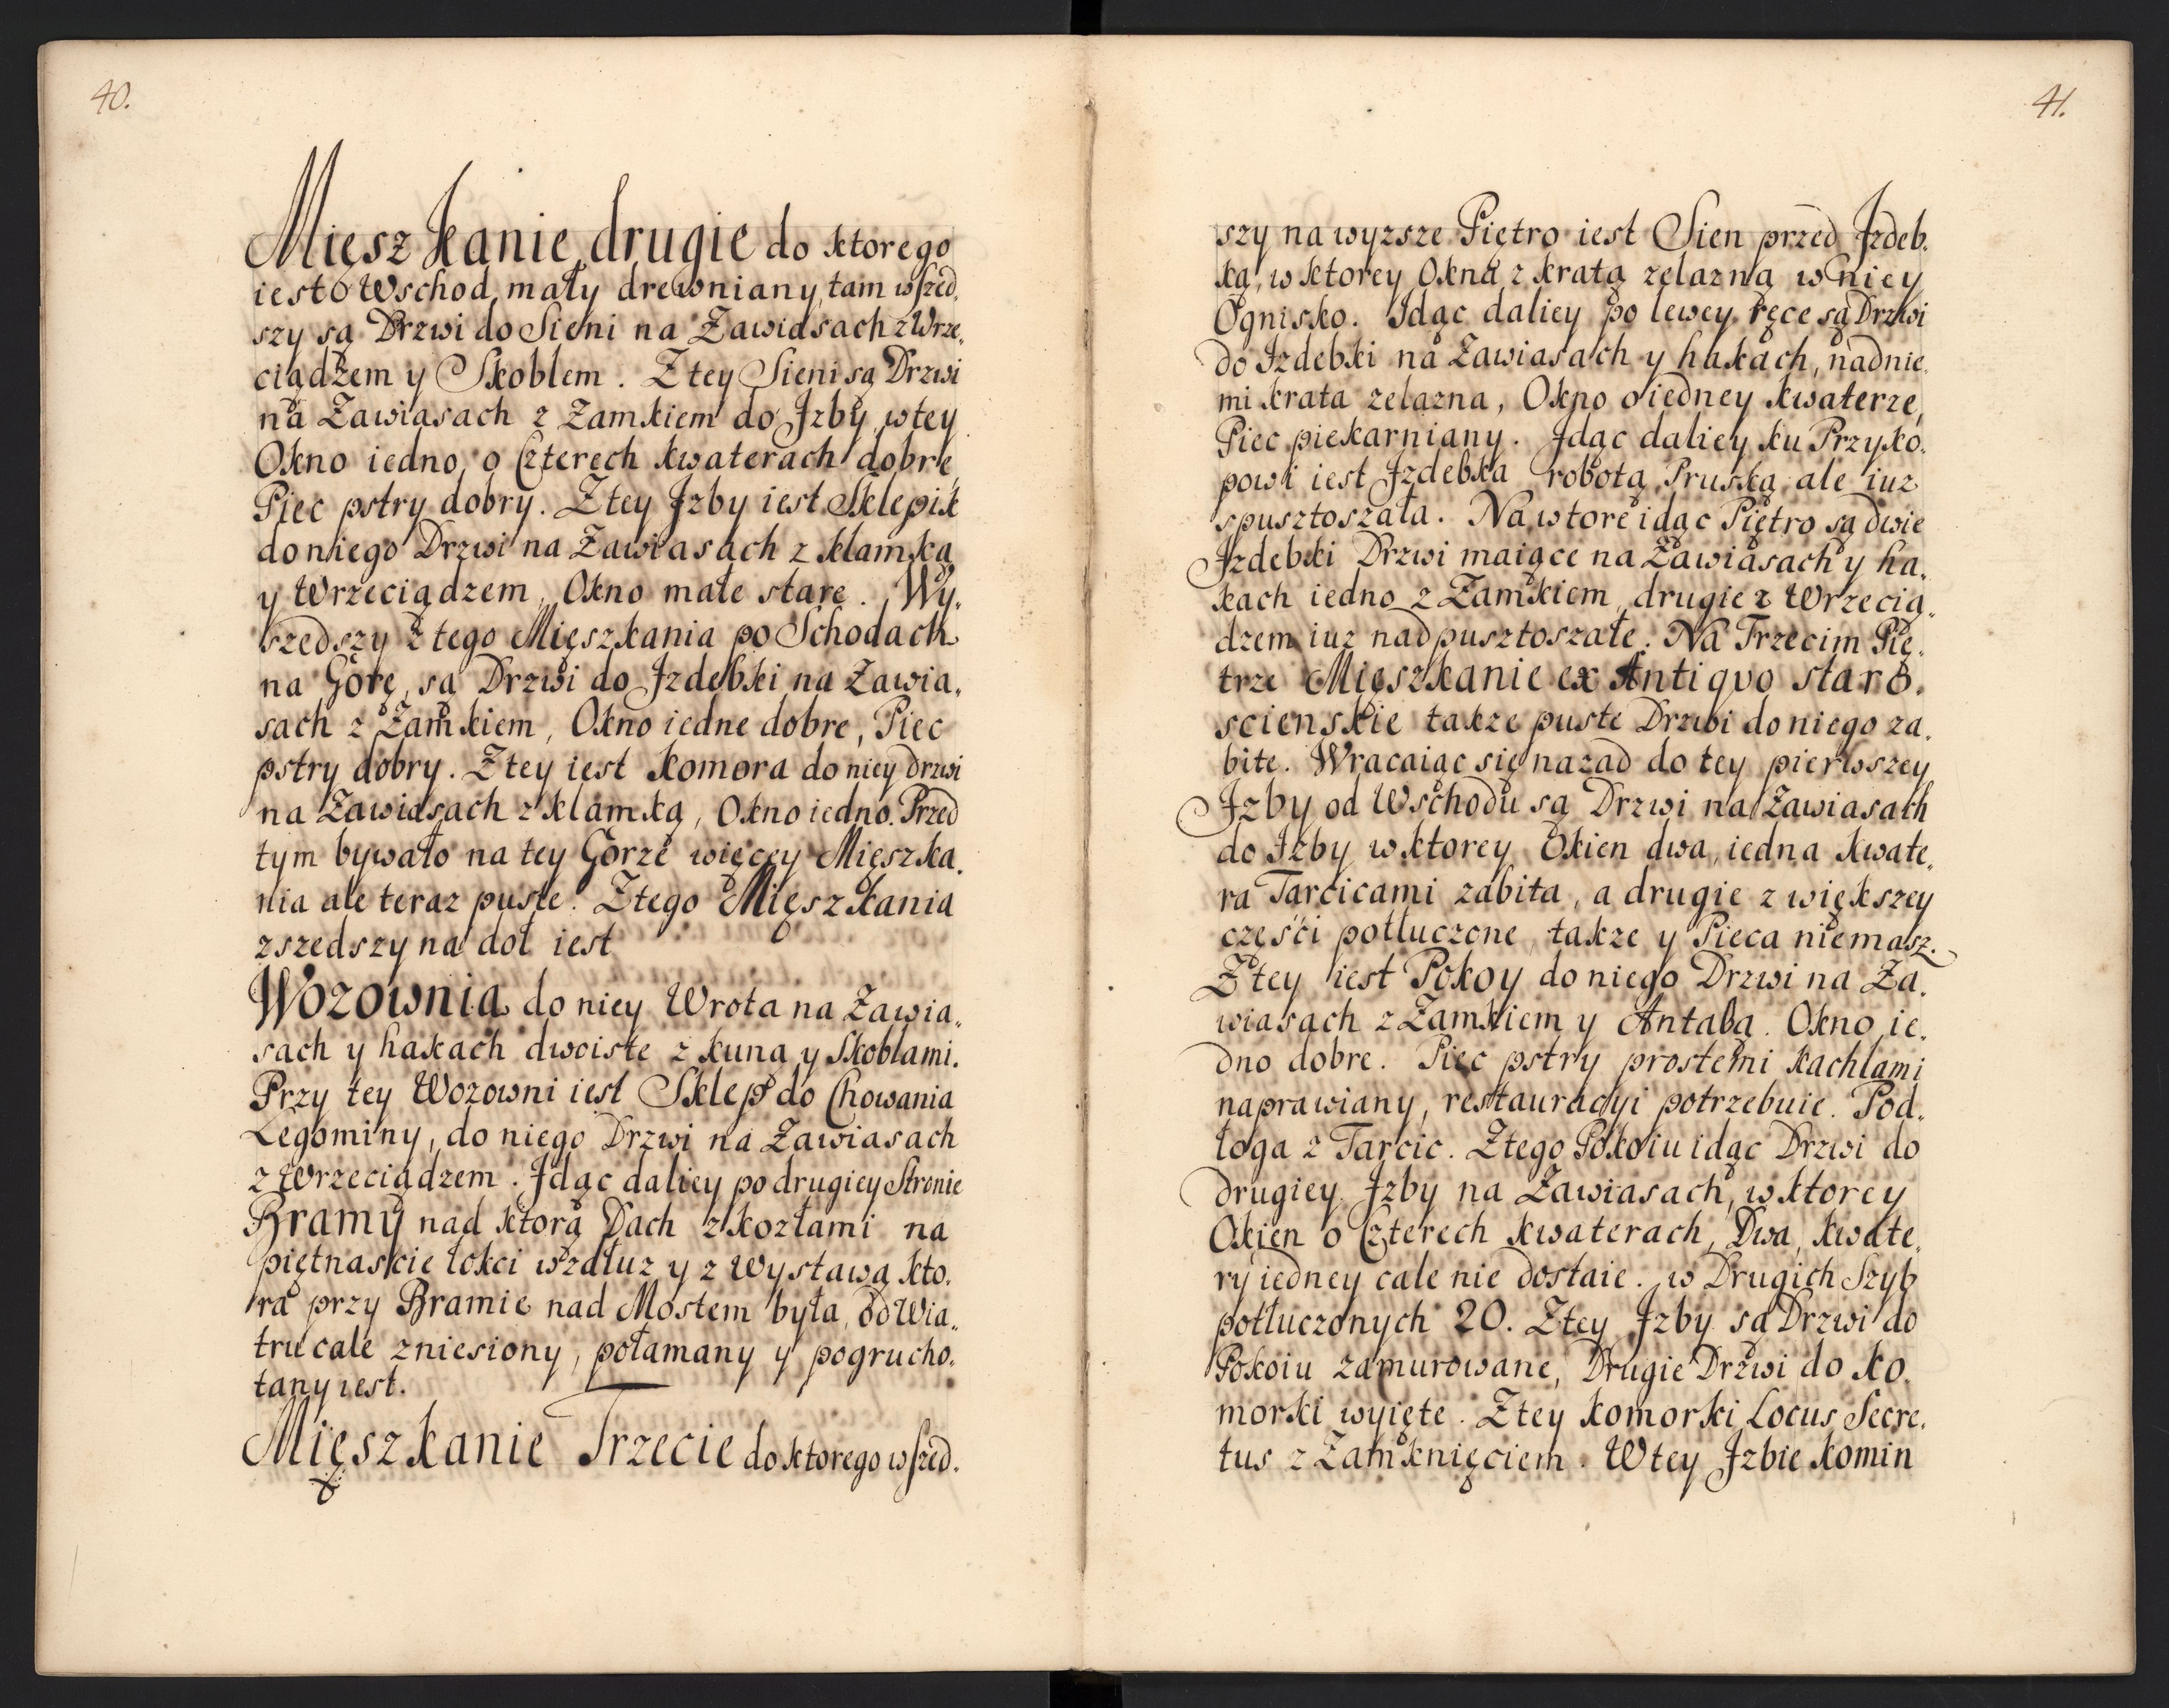 40.
Mięszkanie drugie do ktorego
iest Wschod mały drewniany, tam wszed„
szy są Drzwi do Sieni na Zawiasach z Wrze„
ciądzem y Skoblem. Z tey Sieni są Drzwi
na Zawiasach z Zamkiem do Jzby, w tey
Okno iedno, o Czterech kwaterach dobre,
Piec pstry dobry. Z tey Jzby iest Sklepik
do niego Drzwi na Zawiasach z klamką
y Wrzeciądzem, Okno małe stare. Wy„
szedszy z tego Mięszkania po Schodach
na Gorę, są Drzwi do Jzdebki na Zawia„
sach z Zamkiem, Okno iedne dobre, Piec
pstry dobry. Z tey iest komora do niey drzwi
na Zawiasach z klamką, Okno iedno. Przed
tym bywało na tey Gorze więcey Mięszka„
nia ale teraz puste. Z tego Mięszkania
zszedszy na doł iest
Wozownia do niey Wrota na Zawia„
sach y hakach dwoiste z kuną y Skoblami.
Przy tey Wozowni iest Sklep do Chowania
Legominy, do niego Drzwi na Zawiasach
z Wrzeciądzem. Jdąc daliey po drugiey Stronie
Bramy nad ktorą Dach z kozłami na
piętnaście łokci wzdłuz y z Wystawą kto„
ra przy Bramie nad Mostem była, od Wia„
tru cale zniesiony, połamany y pogrucho„
tany iest.
Mięszkanie Trzecie do ktorego wszed„
41.
szy na wyzsze Piętro iest Sien przed Jzdeb„
ką, w ktorey Okna z kratą zelazną w niey
Ognisko. Jdąc daliey po lewey ręce są Drzwi
do Jzdebki na Zawiasach y hakach, nad nie„
mi krata zelazna, Okno o iedney kwaterze,
Piec piekarniany. Jdąc daliey ku Przyko„
powi iest Jzdebka robotą Pruską, ale iuz
spusztoszała. Na wtore idąc Piętro są dwie
Jzdebki Drzwi maiące na Zawiasach y ha„
kach iedno z Zamkiem, drugie z Wrzecią„
dzem iuz nadpusztoszałe. Na Trzecim Pię„
trze Mięszkanie ex Antiqvo staro„
scienskie takze puste Drzwi do niego za„
bite. Wracaiąc się nazad do tey pierwszey
Jzby od Wschodu są Drzwi na Zawiasach
do Jzby w ktorey Okien dwa, iedna kwate„
ra Tarcicami zabita, a drugie z większey
częsci potłuczone, takze y Pieca niemasz.
Z tey iest Pokoy do niego Drzwi na Za„
wiasach z Zamkiem y Antabą. Okno ie„
dno dobre. Piec pstry prostemi kachlami
naprawiany, restauracyi potrzebuie. Pod„
łoga z Tarcic. Z tego Pokoiu idąc Drzwi do
drugiey Jzby na Zawiasach, w ktorey
Okien o Czterech kwaterach, Dwa, kwate„
ry iedney cale nie dostaie. w Drugich Szyb
potłuczonych 20. Z tey Jzby są Drzwi do
Pokoiu zamurowane, Drugie Drzwi do ko„
morki wyięte. Z tey komorki Locus Secre„
tus z Zamknięciem. W tey Jzbie komin